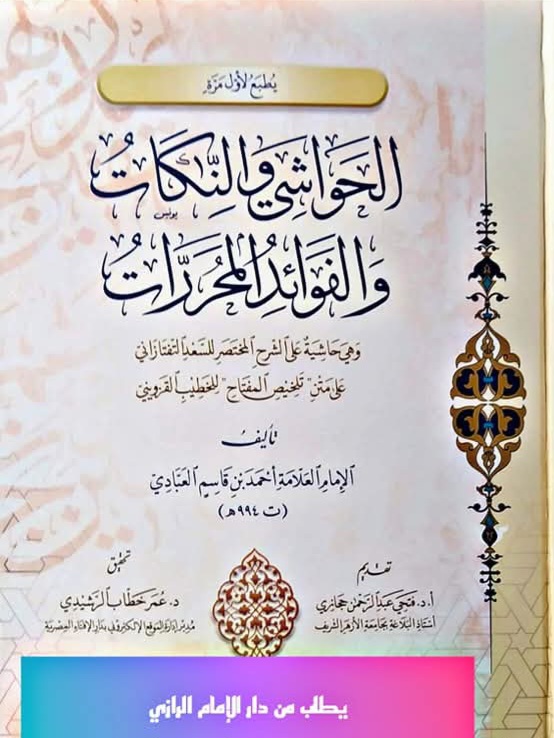 يُطبَعُ لأوّل مَرّة
الحَوَاشِي وَالنِّكَاتُ
وَالفَوَائِدُ المُحَرَّرَاتُ
وَهِيَ حَاشِيَةٌ عَلَى الشَّرْحِ المُخْتَصَرِ لِلسَّعْدِ التَّفْتَازَانِي
عَلَى مَتْنِ "تَلْخِيصِ المِفْتَاحِ" لِلْخَطِيبِ القَزْوِينِي
تأليفُ
الإِمَامِ العَلَّامَةِ أَحْمَدَ بْنِ قَاسِمٍ العَبَّادِيّ
(ت ٩٩٤هـ)
تقديم
أ.د. فَتْحِي عَبْدِ الرَّحْمٰن حِجَازِي
أستاذ البلاغة بجامعة الأزهر الشريف
تحقيق
د. عُمَر خَطَّاب الرَّشِيدِي
مدير إدارة الموقع الإلكتروني بدار الإفتاء المصرية
يطلب من دار الإمام الرازي